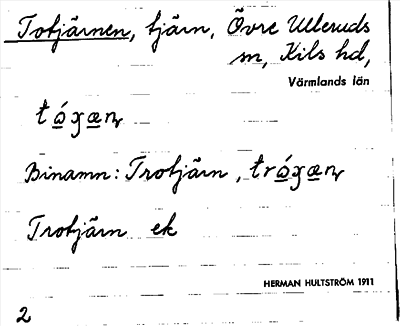 Totjärnen, tjärn, Övre Ulleruds
sn, Kils hd,
Värmlands län
tó̱ʒæ̱ɳ
Binamn: Trotjärn, tró̱ʒæ̱ɳ
Trotjärn ek
HERMAN HULTSTRÖM 1911
2